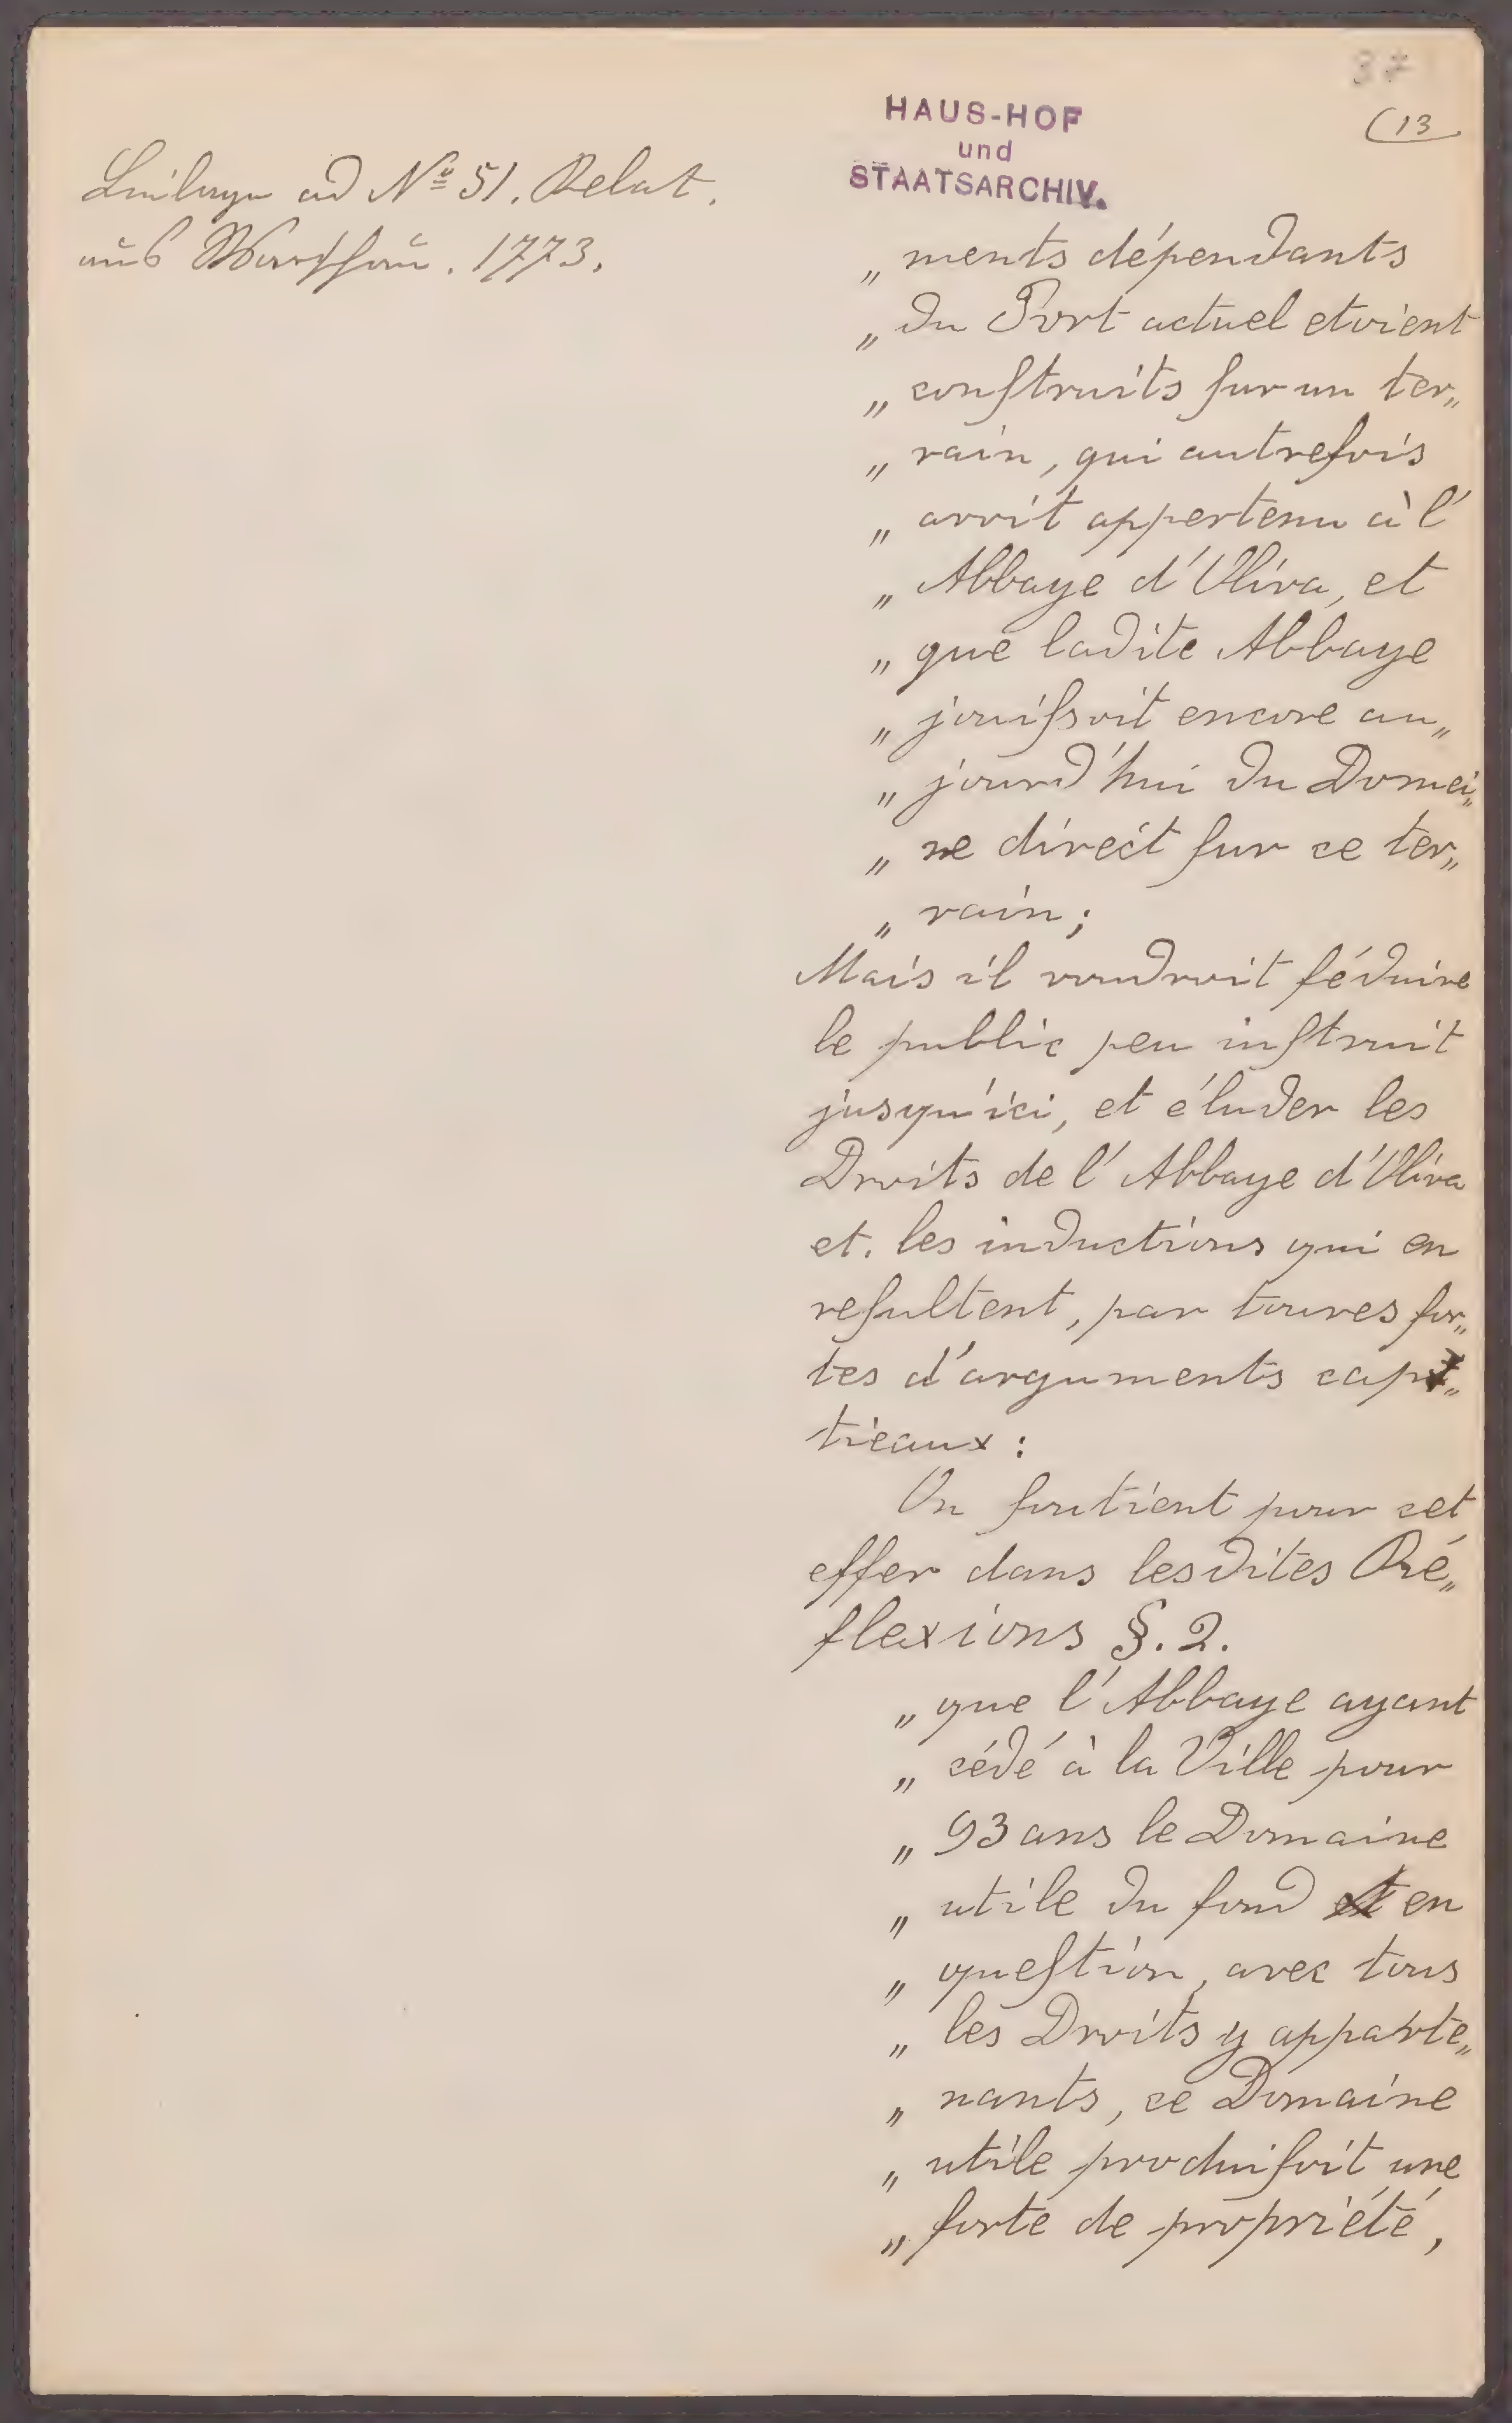 37
(13
HAUS-HOF
und
STAATSARCHIV.
Beilage ad Nº 51. Relat.
aus Warschau. 1773.
„ ments dépendants
„ du Port actuel etoient
„ conſtruits ſur un ter„
„ rain, qui autrefois
„ avoit appertenu à l'
„ Abbaye d'Oliva, et
„ que ladite Abbaye
„ jouiſsoit encore au„
„ jourd'hui du Domai„
„ ne direct ſur ce ter„
„ rain;
Mais il voudroit ſéduire
le public peu inſtruit
jusqu'ici, et éluder les
Droits de l'Abbaye d'Oliva
et. les inductions qui en
reſultent, par toures ſor„
tes d'arguments cap„
tieaux:
On ſoutient pour cet
effer dans lesdites Ré„
flexions §. 2.
„ que l'Abbaye ayant
„ cédé à la Ville pour
„ 93 ans le Domaine
„ utile du fond en
„ queſtion, avec tous
„ les Droits y apparte„
„ nants, ce Domaine
„ utile produiſoit une
„ ſorte de propriété,